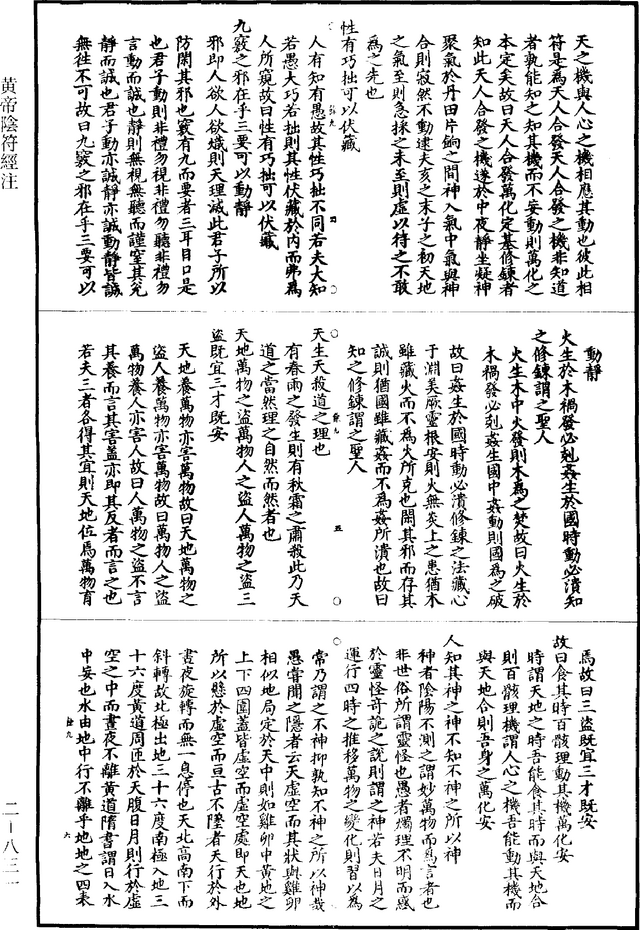 天之機與人心之機相應其動也彼此相
符是為天人合發天人合發之機非知道
者孰能知之知其機而不妄動則萬化之
本定矣故曰天人合發萬化定基修鍊者
知此天人合發之機遂於中夜靜坐凝神
聚氣於丹田片餉之間神入氣中氣與神
合則寂然不動逮夫亥之末子之初天地
之氣至則急採之未至則虛以待之不敢
為之先也
性有巧拙可以伏藏
人有知有愚故其性巧拙不同若夫大知
若愚大巧若拙則其性伏藏於內而弗為
人所窺故曰性有巧拙可以伏藏
九竅之邪在乎三要可以動靜
邪即人欲人欲熾則天理滅此君子所以
防閑其邪也竅有九而要者三耳目口是
也君子動則非禮勿視非禮勿聽非禮勿
言動而誠也靜則無視無聽而謹窒其兌
靜而誠也君子動亦誠靜亦誠動靜皆誠
無往不可故曰九竅之邪在乎三要可以
動靜
火生於木禍發必剋姦生於國時動必潰知
之修鍊謂之聖人
火生木中火發則木為之焚故曰火生於
木禍發必剋姦生國中姦動則國為之破
故曰姦生於國時動必潰修鍊之法藏心
于淵美厥靈根安則火無炎上之患猶木
雖藏火而不為火所克也閑其邪而存其
誠則猶國雖藏姦而不為姦所潰也故曰
知之修鍊謂之聖人
天生天殺道之理也
有春雨之發生則有秋霜之肅殺此乃天
道之當然理之自然而然者也
天地萬物之盜萬物人之盜人萬物之盜三
盜既宜三才既安
天地養萬物亦害萬物故曰天地萬物之
盜人養萬物亦害萬物故曰萬物人之盜
萬物養人亦害人故曰人萬物之盜不言
其養而言其害蓋亦即其反者而言之也
若夫三者各得其宜則天地位焉萬物育
焉故曰三盜既宜三才既安
故曰食其時百骸理動其機萬化安
時謂天地之時吾能食其時而與天地合
則百骸理機謂人心之機吾能動其機而
與天地合則吾身之萬化安
人知其神之神不知不神之所以神
神者陰陽不測之謂妙萬物而為言者也
非世俗所謂靈怪也愚者燭理不明而惑
於靈怪奇詭之說則謂之神若夫日月之
運行四時之推移萬物之變化則習以為
常乃謂之不神抑孰知不神之所以神哉
愚嘗聞之隱者云天虛空而其狀與雞卵
相似地局定於天中則如雞卵中黃地之
上下四圍蓋皆虛空而虛空處即天也地
所以懸於虛空而亘古不墜者天行於外
晝夜旋轉而無一息停也天北高南下而
斜轉故北極出地三十六度南極入地三
十六度黃道周匝於天腹日月則行於虛
空之中而晝夜不離黃道隋書謂日入水
中妄也水由地中行不離乎地地之四表
黃帝陰符經注
二－八三一